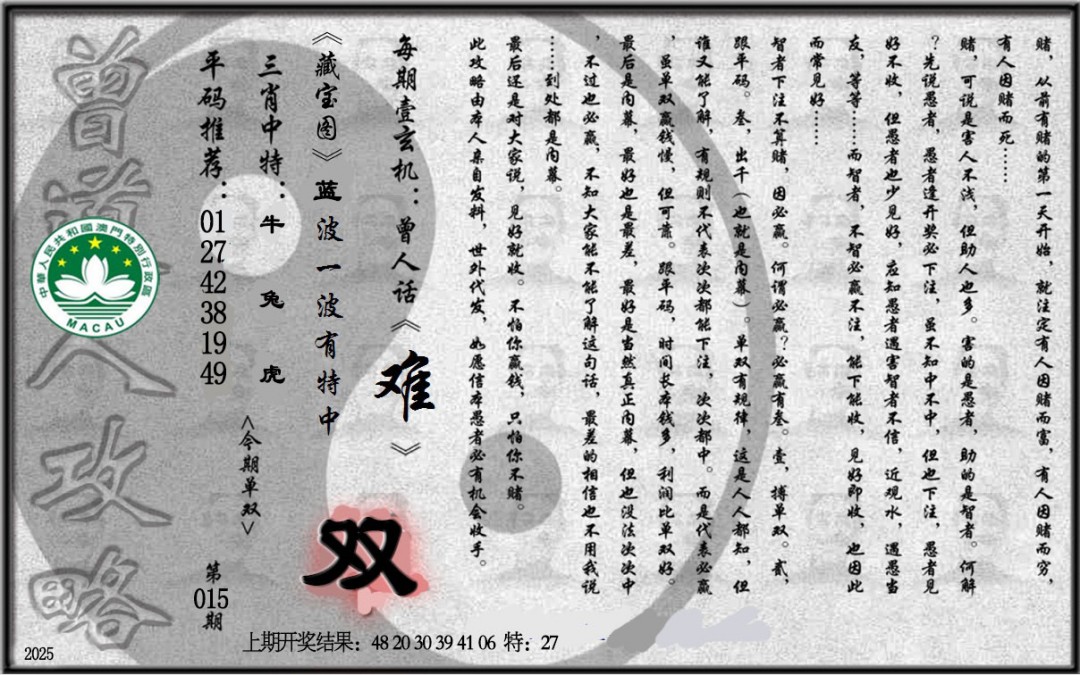 赌，从前有赌的第一天开始，就注定有人因赌而富，有人因赌而穷，
有人因赌而死……
赌，可说是害人不浅，但助人也多。害的是愚者，助的是智者。何解
？先说愚者，愚者逢开奖必下注，虽不知中不中，但也下注，愚者见
好不收，但愚者也少见好，应知愚者遇害智者不信，近观水，遇愚当
友，等等……而智者，不智必赢不注，能下能收，见好即收，也因此
而常见好……
智者下注不算赌，因必赢。何谓必赢？必赢有叁。壹，搏单双。贰，
跟平码。叁，出千（也就是内幕）。单双有规律，这是人人都知，但
谁又能了解，有规则不代表次次都能下注，次次都中。而是代表必赢
，虽单双赢钱慢，但可靠。跟平码，时间长本钱多，利润比单双好。
最后是内幕，最好也是最差，最好是当然真正内幕，但也没法次次中
，不过也必赢，不知大家能不能了解这句话，最差的相信也不用我说
……到处都是内幕。
最后还是对大家说，见好就收。不怕你赢钱，只怕你不赌。
此攻略由本人亲自发料，世外代发，如愿信本愚者必有机会收手。
每期壹玄机：曾人话《难》
《藏宝图》蓝波一波有特中
三肖中特：牛 兔 虎
<今期单双>
双
平码推荐：01 27 42 38 19 49
第015期
曾道人攻略
中華人民共和國澳門特別行政區
MACAU
上期开奖结果：48 20 30 39 41 06 特：27
2025